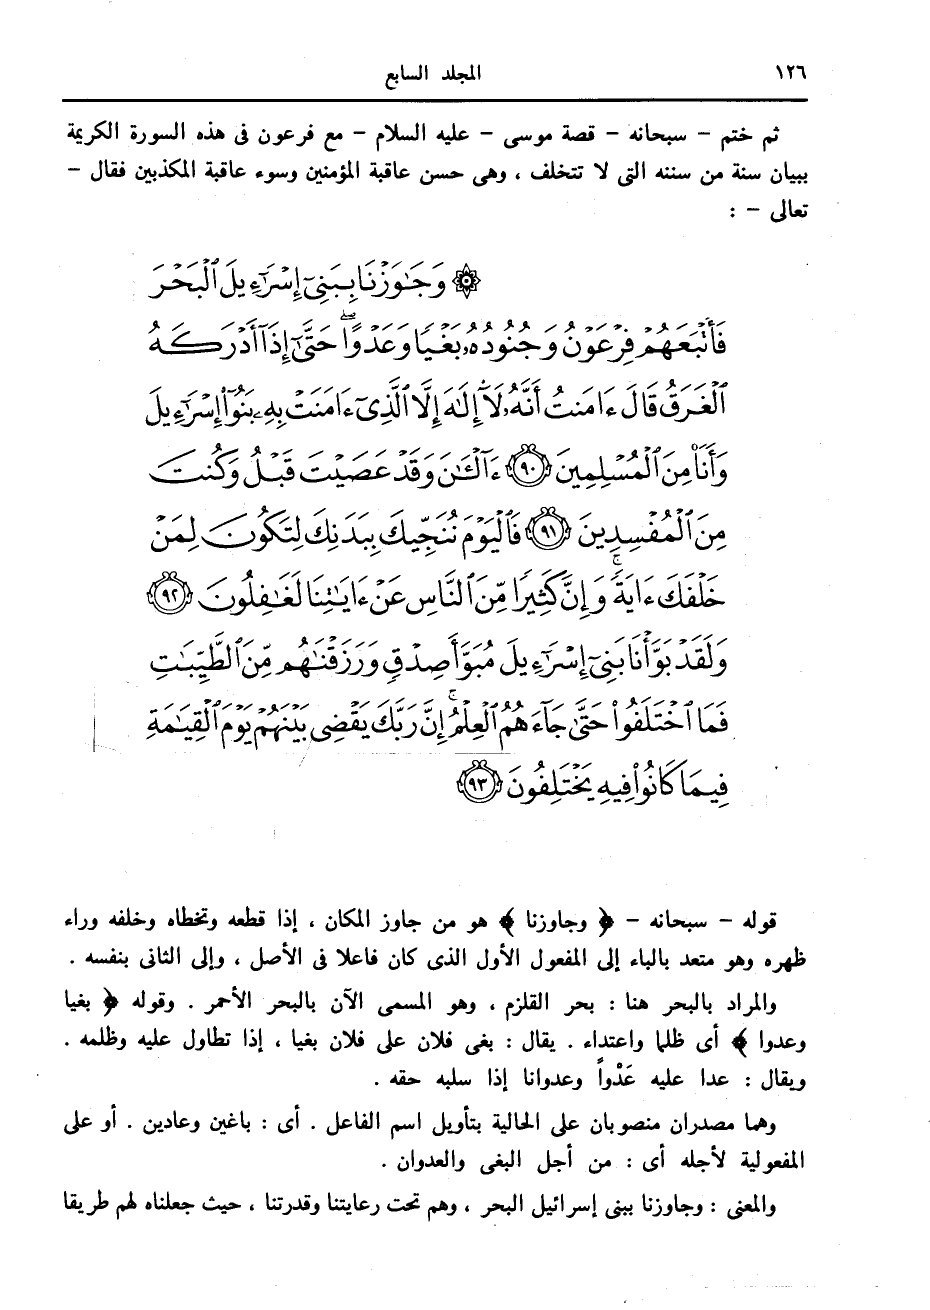 ١٢٦ المجلد السابع
ثم ختم – سبحانه – قصة موسى – عليه السلام – مع فرعون فى هذه السورة الكريمة
ببيان سنة من سننه التى لا تتخلف ، وهى حسن عاقبة المؤمنين وسوء عاقبة المكذبين فقال –
تعالى – :
۞ وَجَٰوَزْنَا بِبَنِىٓ إِسْرَٰٓءِيلَ ٱلْبَحْرَ
فَأَتْبَعَهُمْ فِرْعَوْنُ وَجُنُودُهُۥ بَغْيًا وَعَدْوًا ۖ حَتَّىٰٓ إِذَآ أَدْرَكَهُ
ٱلْغَرَقُ قَالَ ءَامَنتُ أَنَّهُۥ لَآ إِلَٰهَ إِلَّا ٱلَّذِىٓ ءَامَنَتْ بِهِۦ بَنُوٓا۟ إِسْرَٰٓءِيلَ
وَأَنَا۠ مِنَ ٱلْمُسْلِمِينَ ٩٠ ءَآلْـَٰٔنَ وَقَدْ عَصَيْتَ قَبْلُ وَكُنتَ
مِنَ ٱلْمُفْسِدِينَ ٩١ فَٱلْيَوْمَ نُنَجِّيكَ بِبَدَنِكَ لِتَكُونَ لِمَنْ
خَلْفَكَ ءَايَةً ۚ وَإِنَّ كَثِيرًا مِّنَ ٱلنَّاسِ عَنْ ءَايَٰتِنَا لَغَٰفِلُونَ ٩٢
وَلَقَدْ بَوَّأْنَا بَنِىٓ إِسْرَٰٓءِيلَ مُبَوَّأَ صِدْقٍ وَرَزَقْنَٰهُم مِّنَ ٱلطَّيِّبَٰتِ
فَمَا ٱخْتَلَفُوا۟ حَتَّىٰ جَآءَهُمُ ٱلْعِلْمُ ۚ إِنَّ رَبَّكَ يَقْضِى بَيْنَهُمْ يَوْمَ ٱلْقِيَٰمَةِ
فِيمَا كَانُوا۟ فِيهِ يَخْتَلِفُونَ ٩٣
قوله – سبحانه – ﴿ وجاوزنا ﴾ هو من جاوز المكان ، إذا قطعه وتخطاه وخلفه وراء
ظهره وهو متعد بالباء إلى المفعول الأول الذى كان فاعلا فى الأصل ، وإلى الثانى بنفسه .
والمراد بالبحر هنا : بحر القلزم ، وهو المسمى الآن بالبحر الأحمر . وقوله ﴿ بغيا
وعدوا ﴾ أى ظلما واعتداء . يقال : بغى فلان على فلان بغيا ، إذا تطاول عليه وظلمه .
ويقال : عدا عليه عَدْواً وعدوانا إذا سلبه حقه .
وهما مصدران منصوبان على الحالية بتأويل اسم الفاعل . أى : باغين وعادين . أو على
المفعولية لأجله أى : من أجل البغى والعدوان .
والمعنى : وجاوزنا ببنى إسرائيل البحر ، وهم تحت رعايتنا وقدرتنا ، حيث جعلناه لهم طريقا